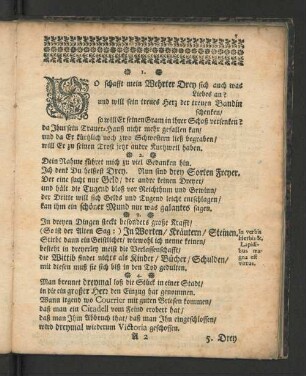 1.
SO schafft mein Wehrter Drey sich auch was
Liebes an?
und will sein treues Hertz der treuen Bandin
schencken/
so will Er seinen Gram in ihrer Schoß versencken?
da Ihm sein Trauer-Hauß nicht mehr gefallen kan/
und da Er kürtzlich noch zwo Schwestern ließ begraben/
will Er zu seinen Trost jetzt andre Kurtzweil haben.
2.
Dein Nahme führet mich zu viel Gedancken hin.
Ich denck Du heißest Drey. Nun sind drey Sorten Freyer.
Der eine sucht nur Geld/ der andre keinen Dreyer/
und hält die Tugend bloß vor Reichthum und Gewinn/
der Dritte will sich Gelds und Tugend leicht entschlagen/
kan ihm ein schöner Mund nur was galantes sagen.
3.
In dreyen Dingen steckt besonders grosse Krafft/
(So ist der Alten Sag:) In Worten/ Kräutern/ Steinen.
Stirbt dann ein Geistlicher/ wieviel ich deren
besteht in dreyerley meist die Verlassenschafft/
die Wittib findet nichts als Kinder/ Bücher/ Schulden/
mit diesen muß sie sich biß in den Tod gedulten.
In verbis
herbis &
Lapidi-
bus ma-
gna est
4.
Man brennet dreymal loß die Stück in einer Stadt/
in die ein grosser Herr den Einzug hat genommen.
Wann irgend wo Courrier mit guten Briefen kommen/
daß man ein Citadell vom Feind erobert hat/
daß man Ihm Abbruch that/ daß man Ihn eingeschlossen/
wird dreymal wiederum Victoria geschossen.
A 2
5. Drey